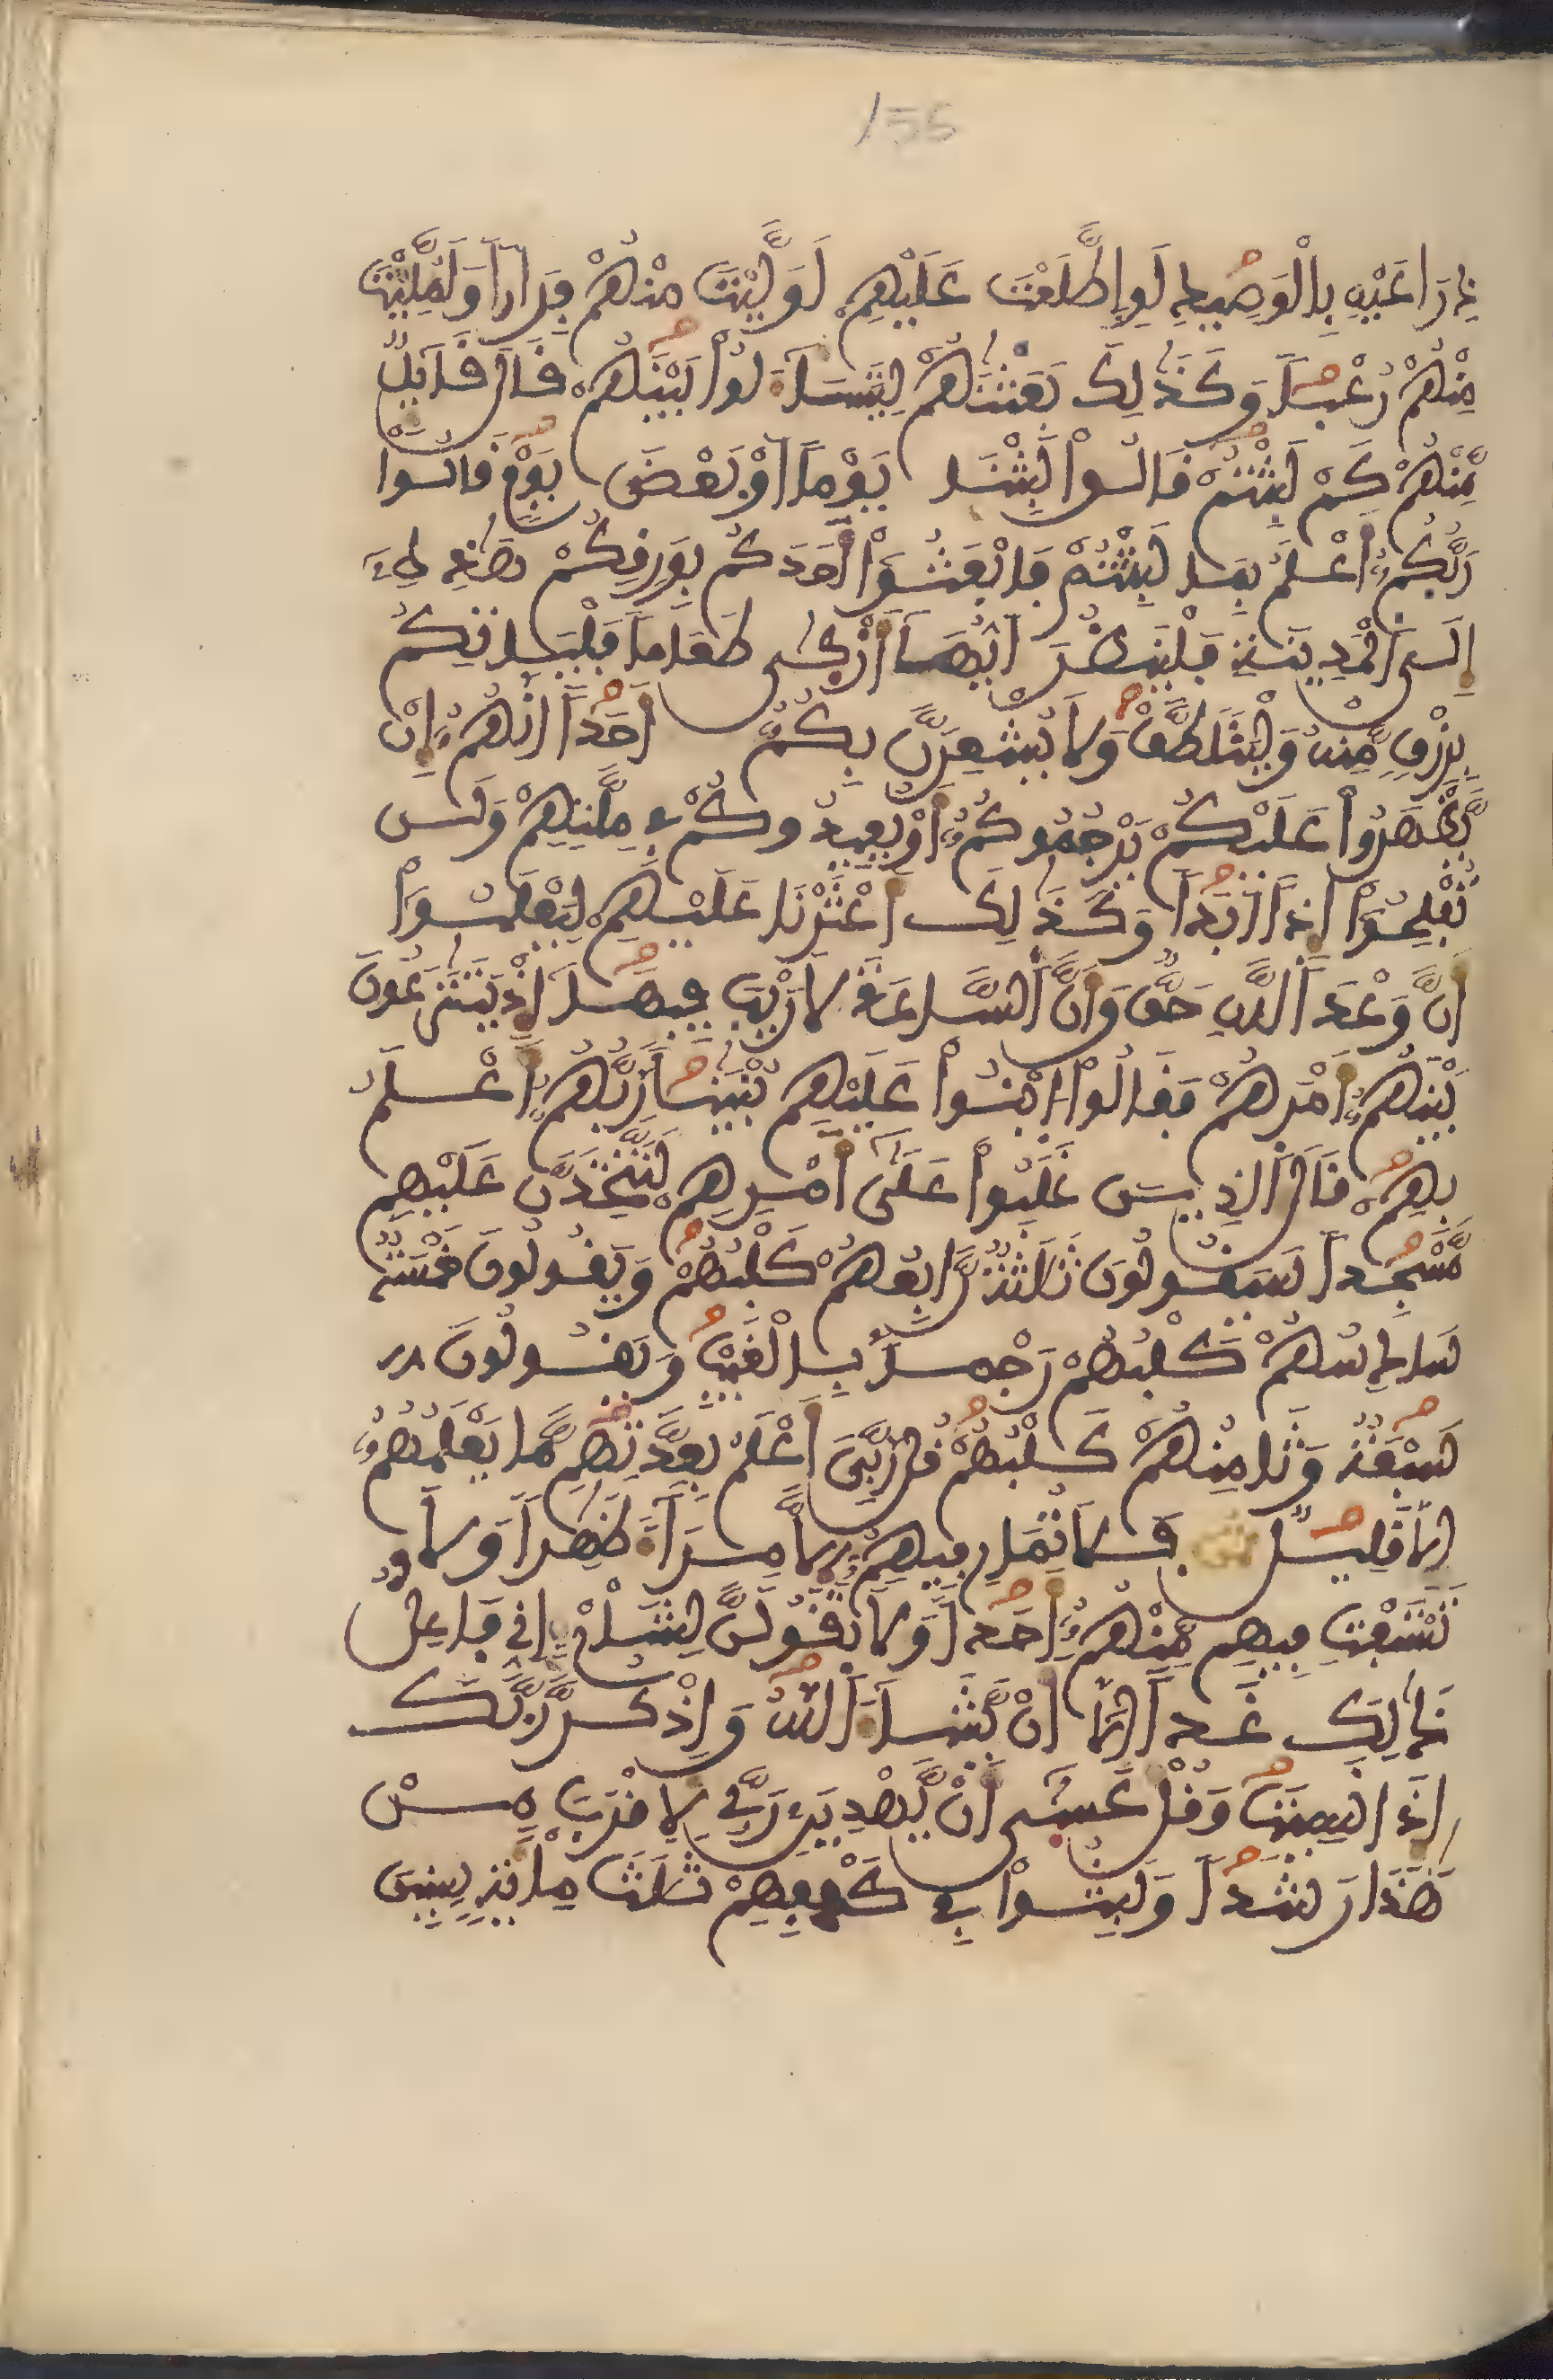 155
ذِرَاعَيْهِ بِالْوَصِيدِ لَوِ اِطَّلَعْتَ عَلَيْهِمْ لَوَلَّيْتَ مِنْهُمْ فِرَاراً وَلَمُلِّئْتَ
مِنْهُمْ رُعْباً وَكَذَٰلِكَ بَعَثْنَٰهُمْ لِيَتَسَآءَلُواْ بَيْنَهُمْ قَالَ قَآئِلٌ
مِّنْهُمْ كَمْ لَبِثْتُمْ قَالُواْ لَبِثْنَا يَوْماً أَوْ بَعْضَ يَوْمٍ قَالُواْ
رَبُّكُمُۥٓ أَعْلَمُ بِمَا لَبِثْتُمْ فَابْعَثُوٓاْ أَحَدَكُم بِوَرِقِكُمْ هَٰذِهِۦٓ
إِلَى اَلْمَدِينَةِ فَلْيَنظُرَ اَيُّهَآ أَزْكَىٰ طَعَاماً فَلْيَاتِكُم
بِرِزْقٍ مِّنْهُ وَلْيَتَلَطَّفْ وَلَا يُشْعِرَنَّ بِكُمُۥٓ أَحَداً اِنَّهُمُۥٓ إِنْ
يَّظْهَرُواْ عَلَيْكُمْ يَرْجُمُوكُمُۥٓ أَوْ يُعِيدُوكُمْ فِے مِلَّتِهِمْ وَلَن
تُفْلِحُوٓاْ إِذاً اَبَداً وَكَذَٰلِكَ أَعْثَرْنَا عَلَيْهِمْ لِيَعْلَمُوٓاْ
أَنَّ وَعْدَ اَللَّهِ حَقٌّ وَأَنَّ اَلسَّاعَةَ لَا رَيْبَ فِيهَآ إِذْ يَتَنَٰزَعُونَ
بَيْنَهُمُۥٓ أَمْرَهُمْ فَقَالُواْ اُ۪بْنُواْ عَلَيْهِم بُنْيَٰناً رَّبُّهُمُۥٓ أَعْلَمُ
بِهِمْ قَالَ اَلذِينَ غَلَبُواْ عَلَىٰٓ أَمْرِهِمْ لَنَتَّخِذَنَّ عَلَيْهِم
مَّسْجِداً سَيَقُولُونَ ثَلَٰثَةٌ رَّابِعُهُمْ كَلْبُهُمْ وَيَقُولُونَ خَمْسَةٌ
سَادِسُهُمْ كَلْبُهُمْ رَجْماً بِالْغَيْبِ وَيَقُولُونَ
سَبْعَةٌ وَثَامِنُهُمْ كَلْبُهُمْ قُل رَّبِّيَ أَعْلَمُ بِعِدَّتِهِم مَّا يَعْلَمُهُمُۥٓ
إِلَّا قَلِيلٌ فَلَا تُمَارِ فِيهِمُۥٓ إِلَّا مِرَآءً ظَٰهِراً وَلَا
تَسْتَفْتِ فِيهِم مِّنْهُمُۥٓ أَحَداً وَلَا تَقُولَنَّ لِشَاْےْءٍ إِنِّے فَاعِلٌ
ذَٰلِكَ غَداً اِلَّآ أَنْ يَّشَآءَ اَللَّهُ وَاذْكُر رَّبَّكَ
إِذَا نَسِيتَ وَقُلْ عَسَىٰٓ أَنْ يَّهْدِيَنِۦ رَبِّے لِأَقْرَبَ مِنْ
هَٰذَا رَشَداً وَلَبِثُواْ فِے كَهْفِهِمْ ثَلَٰثَ مِاْئَةٍ سِنِينَ